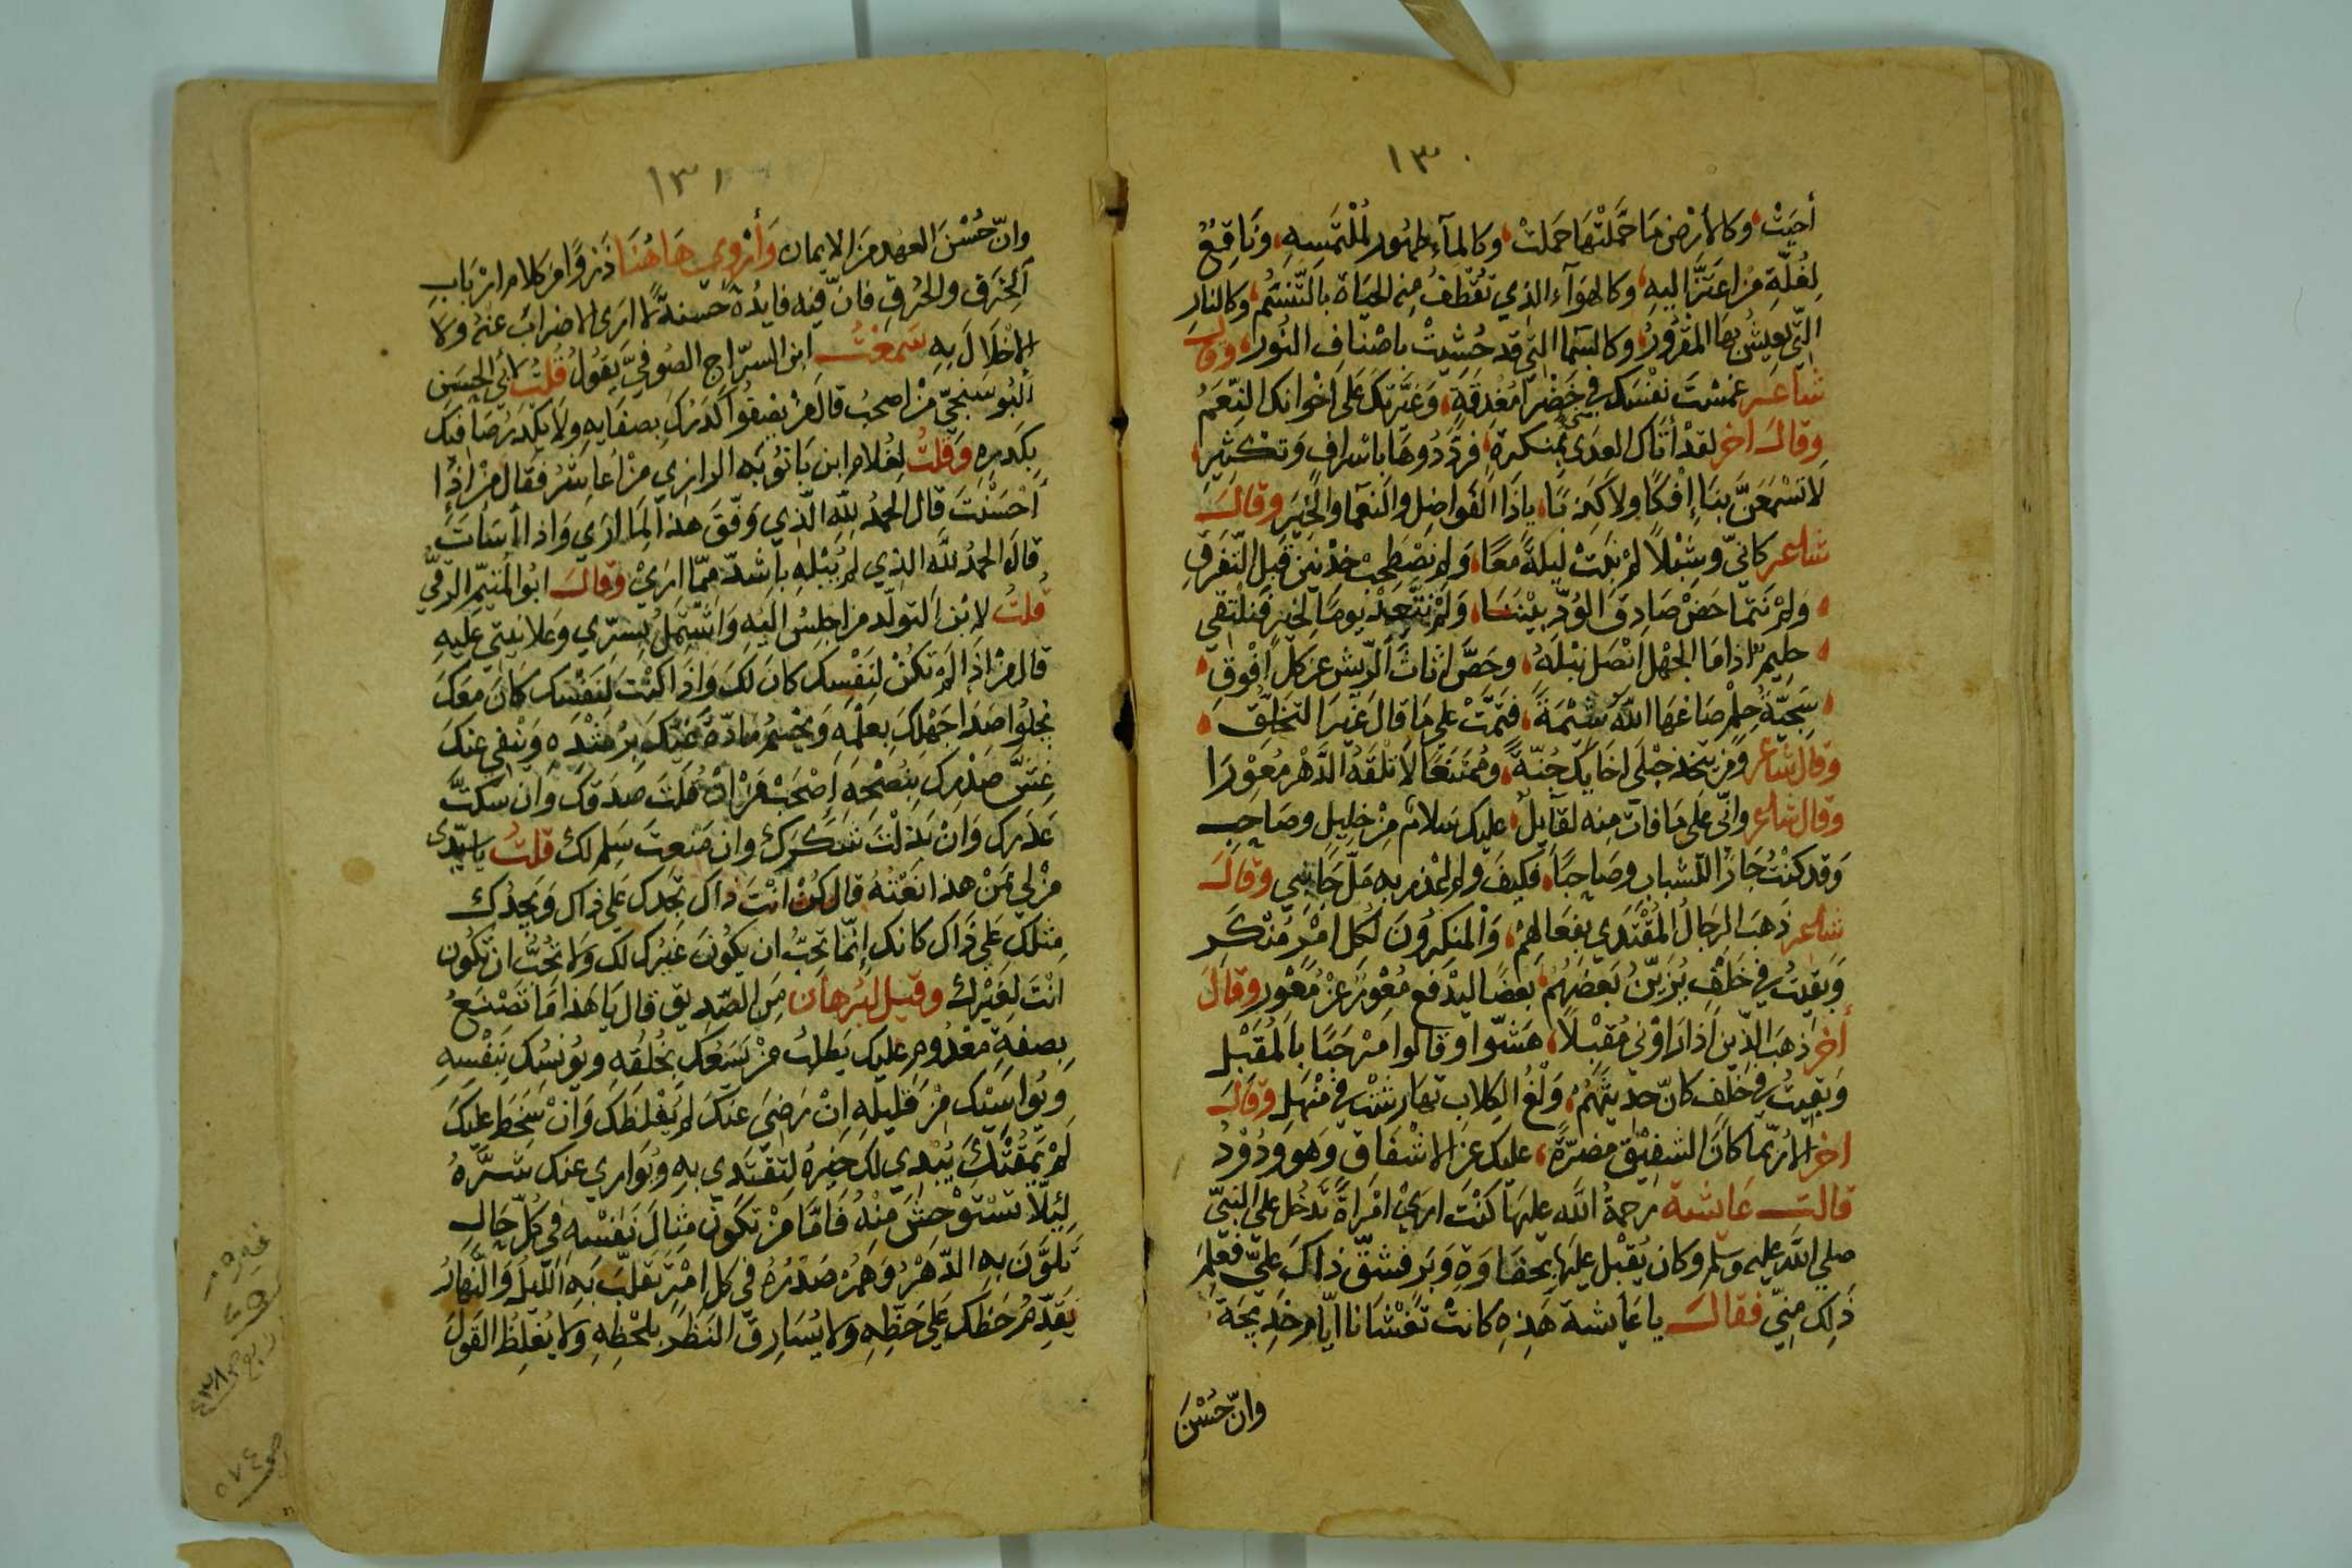 ١٣٠
أحيَتْ وكالأرْضِ مَا حَمَّلْتَهَا حَمَلَتْ وكالمآءِ طهُور لمُلْتَمِسِهِ وَنَاقِعٌ
لِغُلَّةِ مَن اعتَزَّ اليهِ وكالهَوَآء الذي تُقْطَفُ مِنه الحيَاة بالتَّنَسُّم وكالنارِ
التي يَعِيشُ بهَا المقْرُورُ وكالسَمآ التي قد حُشِيَتْ باصْنافِ النُور وقال
شاعر غمسْتَ نفسَك في خَضْرَا مُغْدِقَةٍ وَغيَّرَتكَ عَلى اخْوانك النِّعَمُ
وقالَ اخر لقدْ أتَاك العدَى بمنكرةٍ فردّدُوهَا باسْرافٍ وَتكْثِيرِ
لا تَسْمَعَنَّ بنَا إفْكًا ولا كَذِبًا ياذَا الفَواضِل والنعمَا والخِيَر وقالَ
شاعر كانيّ وشِبْلاً لمْ نَبَتْ ليلَةً معًا وَلم نصْطَحِبْ خدْنَينِ قَبل التّفرّقِ
وَلمْ نتَمَاحَضْ صَادِقَ الوُدِّ بيْننَا وَلمْ نتَّعِدْ يومًا لخيرٍ فنلتقي
حليم اذا مَا الجهْل انْصَل نبْلَهُ وحَصَّ اثَاثَ الرّيش عن كلّ افْوقِ
سَجيّةُ حِلْم صَاغهَا اللّهُ شيْمَةً فتمّتْ على مَا قالَ غيْرَ التخلّق
وقال شاعر وَمَن يتخذ حَبْلي اخًا يكُ جُنّةً وممتنعًا لا تلقَهُ الدَّهْر مُعْوِرَا
وقال شاعر وانّي عَلى مَا فات منه لقآيلٌ عليك سَلامٌ مِنْ خليلٍ وصَاحِبِ
وَقد كنْتُ جَارًا للشبابِ وصَاحِبًا فكيفَ ولم اُعْذَر به ملّ جَانبي وقالَ
شاعر ذَهبَ الرجالُ المقْتدَى بفعَالهمْ وَالمنكِرُونَ لكل امْرٍ مُنْكَرِ
وَبقيتُ في خَلْفٍ يُزيِّنُ بَعضهُمْ بَعضًا ليدْفع مُعْوِرٌ عنْ مُعْوِرِ وقالَ
أخر ذهبَ الذّين اذا رَاوْني مُقبلاً هَشّوا وقالوا مَرْحبًا بالمقْبلِ
وَبقيتُ في خَلْفٍ كانّ حديثهُمْ وَلْغُ الكِلابِ تهَارشَتْ في مَنْهلِ وقالَ
اخر الا رُبّما كانَ الشفيْق مضرّةً عليك عن الاشْفاقِ وَهو ودُوْدُ
قالت عَائشة رحمةُ اللّه عليهَا كنْت ارَى امْراةً تَدْخُل على النبيّ
صلي اللّه عليه وسلم وكان يُقْبل عليهَا بحفاوَةٍ وَبَر فشقّ ذاكَ عليّ فعلمَ
ذَلِك مِنّي فقالَ يا عَايشة هَذِهِ كانتْ تَغْشانا ايّام خدِيجَةَ
وانّ حُسْنَ
١٣١
وانّ حُسْنَ العهْد منَ الايمان وَأرْوي هَاهُنَا ذَرْوًا من كلام ارْبَابِ
الخِرَقِ والحُرَقِ فانّ فيْه فايدُةً حسنةً لا ارَى الاضرابَ عنهُ ولا
الإخْلالَ بِهِ سَمعْتُ ابن السرّاج الصُوفيّ يَقُولُ قلتُ لأبي الحسَن
البُوسَنجيّ مَن اصحبُ قالَ مَنْ يصفُو كَدَرُكَ بصفَايهِ وَلا يكْدَر صَافيكَ
بكَدرِهِ وَقلْتُ لغُلام ابن بَانُوْيه الرازي مَنْ اُعَاشرُ فقال مَنْ اذا
أَحْسَنْتَ قال الحَمْدُ للّهِ الّذي وَفّقَ هذا لِمَا ارَي وَاذا أسَأْتَ
قالَ الحَمدُ للَّه الذي لم يَبْتَلِهِ بأشدّ ممّا ارَيْ وقالَ ابُو المتيّم الرقيّ
قُلتُ لابْنِ التولّد مَن اجلِسُ اليهِ وَاشْتَمِلُ بِسرّي وعلانيتي عَليهِ
قال مَنْ اذا لمْ تكُنْ لنَفْسِك كانَ لكَ وَاذا كنْتَ لنَفْسك كانَ مَعكَ
يجلُوا صَدَا جَهْلِكَ بِعلْمِه وَيحْسِمُ مَادّةَ غَيّكَ برُشْدِه وَيَنْفي عنكَ
غِشَّ صَدْرِك بنُصْحِهِ اصْحَبْ مَنْ انْ قلتَ صَدَقكَ وَان سَكتَّ
عَذَرك وَانْ بَذَلْتَ شَكَرك وان مَنعتَ سَلم لكَ قلتُ يا سَيّدى
مَنْ لي بمَنْ هذا نَعْتُهُ قال كُنْ انْتَ ذاك تجدك عَلي ذاك وَيجدُك
مثلك عَلي ذَاك كانك إنّمَا تحِبُّ ان يكُونَ غيْرُك لكَ وَلا تحُبُّ ان تكُون
انْتَ لغَيْرك وقيل لبُرهَان مَنِ الصّديق قال يَا هَذا مَا تَصْنعُ
بصفةِ مَعْدُومٍ عليك بَطلبِ مَنْ يَسَعُك بخُلُقه ويُونسُك بنَفْسهِ
ويُواسيْك مِنْ قليلِهِ انْ رَضيَ عنكَ لم يَغْلظكَ وَانْ سَخطَ عليكَ
لَمْ يمْقُتْكَ يُبْدِي لك خيرَهُ لتقْتَدي به ويُوَاري عنك شرَّهُ
لِئَلّا تَسْتوْحِشَ مِنْهُ فَامَّا مَنْ تكُون مثالَ نَفْسِه في كلّ حَالٍ
تَلوَّنَ بهِ الدّهْرُ وَهمُّ صَدْرُهُ في كل امْرٍ تقلّبَ بَه اللّيلُ وَالنَّهَارُ
يُقدّمُ حَظكَ عَلى حَظِّه وَلا يُسَارِقُ النَظرَ بلحْظِهِ وَلا يُغلِظُ القولَ